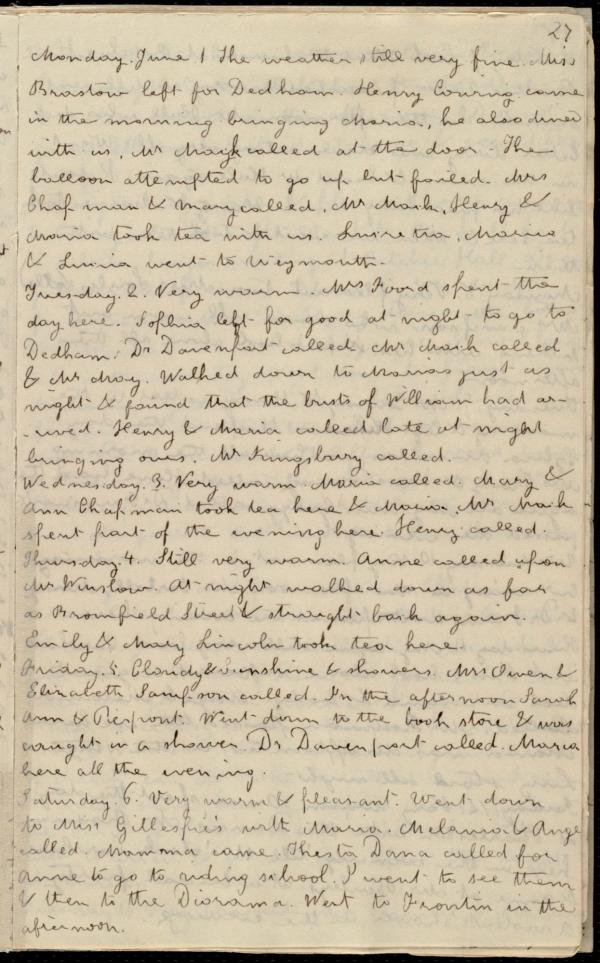 27
Monday. June 1 The weather still very fine. Miss
Brastow left for Dedham. Henry came
in the morning bringing Maria, he also dined
with us, Mr called at the door. The
balloon attempted to go up but failed. Mrs
Chapman & Mary called. Mr Mack, Henry &
Maria took tea with us. Lucretia, Maria
& went to Weymouth.
Tuesday. 2. Very warm. Mrs Foord spent the
day here. Sophia left for good at night to go to
Dedham. Dr Davenport called. Mr Mack called
& Mr May. Walked down to Marias just as
night & found that the busts of William had ar-
-rived. Henry & Maria called late at night
bringing ours. Mr Kingsbury called.
Wednesday. 3. Very warm. Maria called. Mary &
Ann Chapman took tea here & Maria. Mr Mack
spent part of the evening here. Henry called.
Thursday. 4. Still very warm. Anne called upon
Mr Winslow. At night walked down as far
as Bromfield Street & straight back again.
Emily & Mary Lincoln took tea here.
Friday. 5. Cloudy & Sunshine & showers. Mrs Owen &
Elizabeth Sampson called. In the afternoon Sarah
Ann & Pierpont. Went down to the book store & was
caught in a shower. Dr Davenport called. Maria
here all the evening.
Saturday. 6. Very warm & pleasant. Went down
to Miss Gillespie's with Maria. Melania & Ange
called. Mamma came. Thesta Dana called for
Anne to go to riding school. I went to see them
& then to the Diorama. Went to Frontin in the
afternoon.